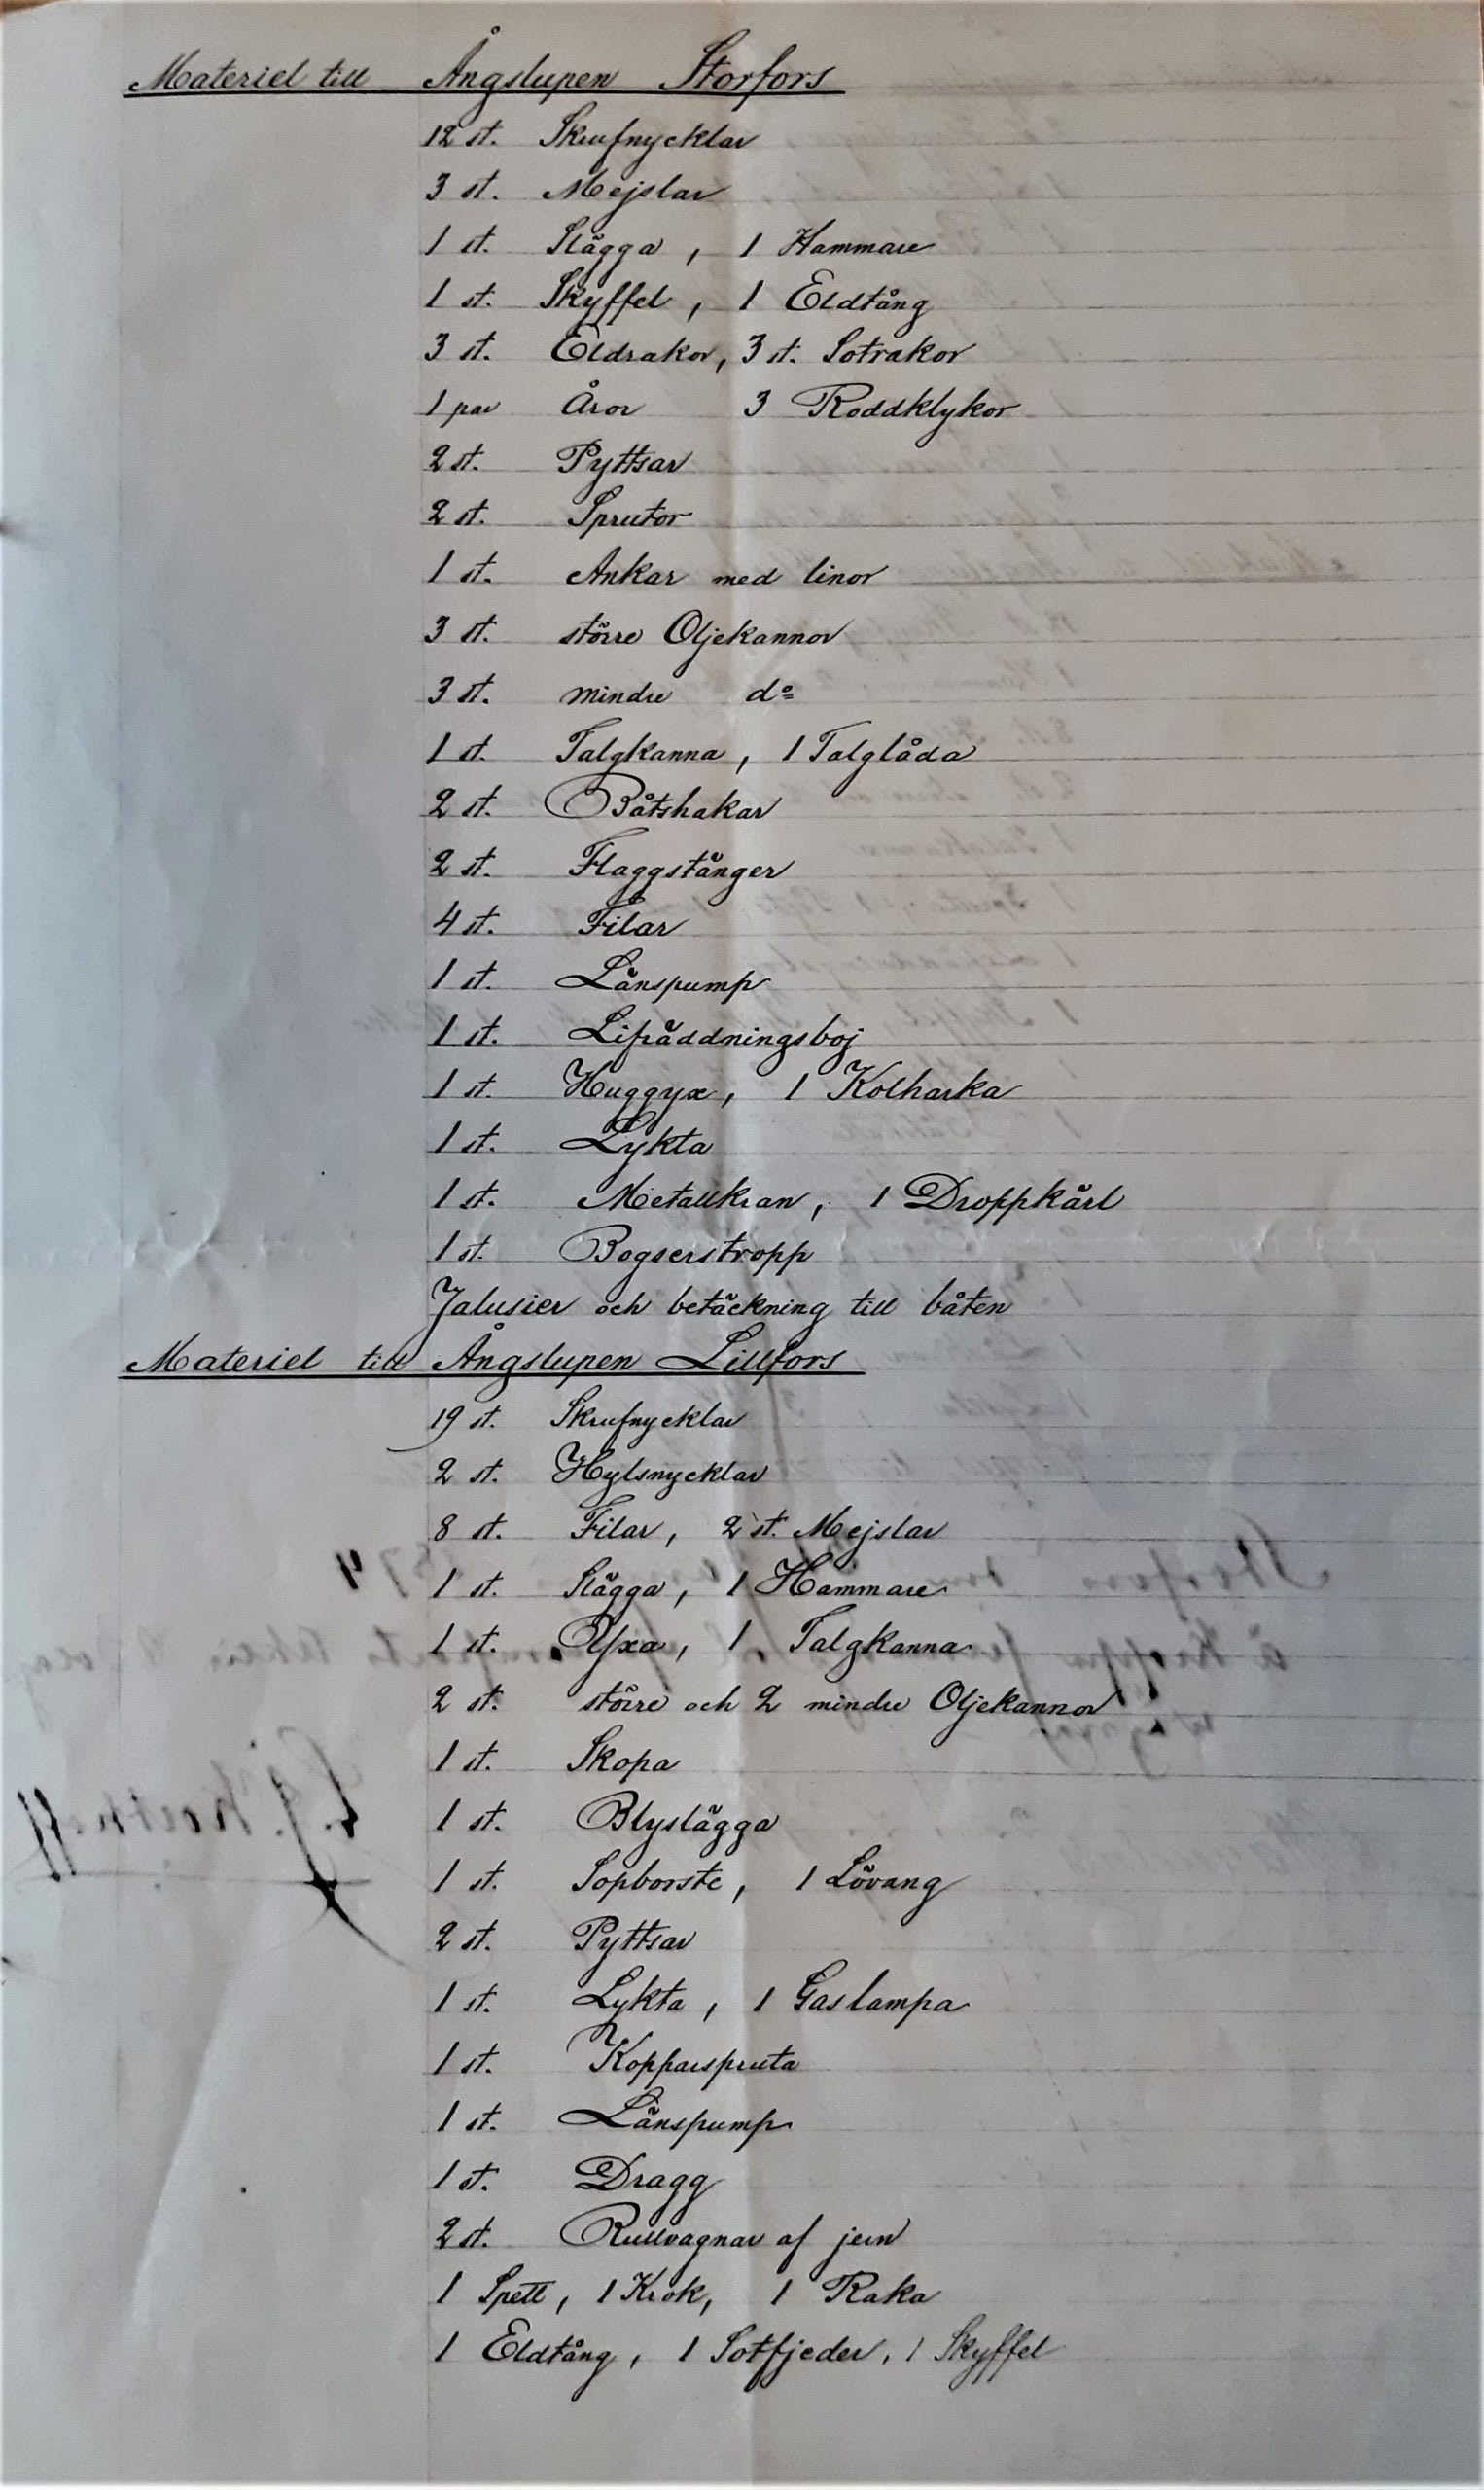 Materiel till Ångslupen Storfors
12 st. Skrufnycklar
3 st. Mejslar
1 st. Slägga, 1 Hammare
1 st. Skyffel, 1 Eldtång
3 st. Eldrakor, 3 st. Sotrakor
1 par Åror 3 Roddklykor
2 st. Pyttsar
2 st. Sprutor
1 st. Ankar med linor
3 st. större Oljekannor
3 st. mindre do
1 st. Talgkanna, 1 Talglåda
2 st. Båtshakar
2 st. Flaggstänger
4 st. Filar
1 st. Länspump
1 st. Lifräddningsboj
1 st. Huggyx, 1 Kolharka
1 st. Lykta
1 st. Metallkran, 1 Droppkärl
1 st. Bogserstropp
Jalusier och betäckning till båten
Materiel till Ångslupen Lillfors
19 st. Skrufnycklar
2 st. Hylsnycklar
8 st. Filar, 2 st. Mejslar
1 st. Slägga, 1 Hammare
1 st. Yxa, 1 Talgkanna
2 st. större och 2 mindre Oljekannor
1 st. Skopa
1 st. Blyslägga
1 st. Sopborste, 1 Lövang
2 st. Pyttsar
1 st. Lykta, 1 Gaslampa
1 st. Kopparspruta
1 st. Länspump
1 st. Dragg
2 st. Rullvagnar af jern
1 Spett, 1 Krok, 1 Raka
1 Eldtång, 1 Sotfjeder, 1 Skyffel